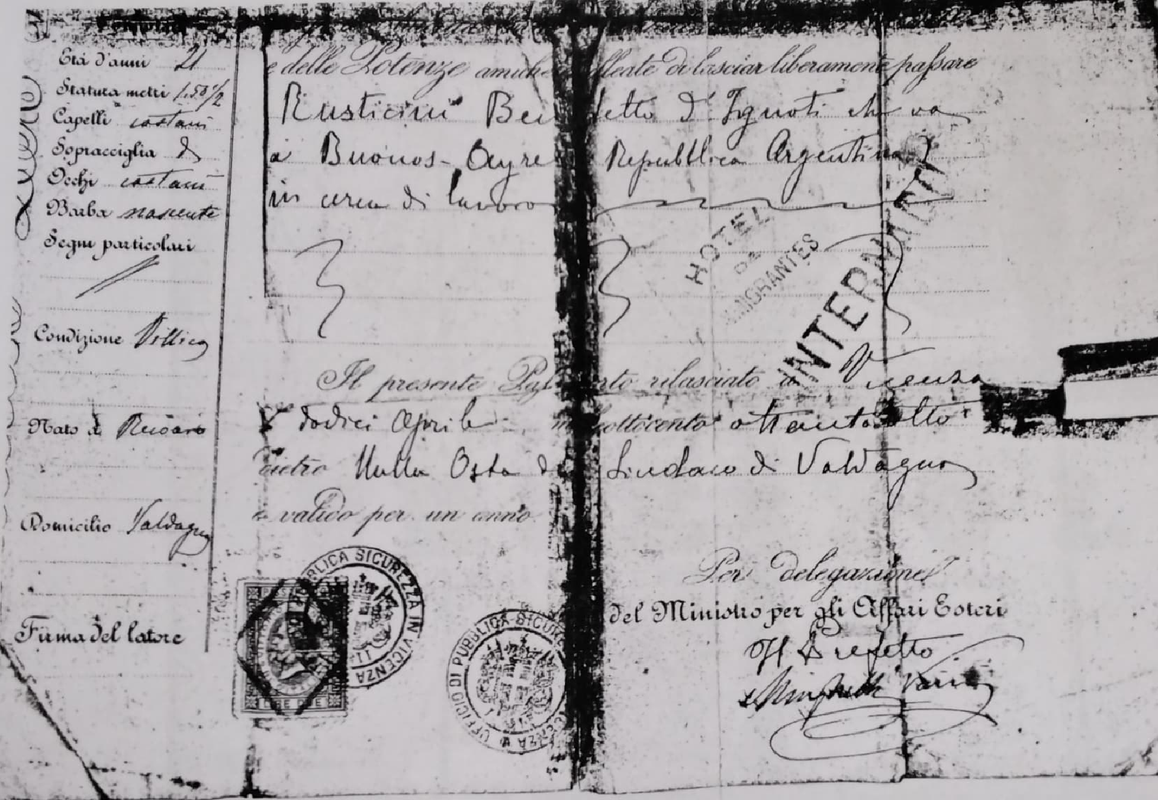 Età d'anni 21
Statura metri 1.50½
Capelli castani
Sopracciglia
Occhi castani
Barba nascente
Segni particolari
Condizione Villico
Nato a Recoaro
Domicilio Valdagno
Firma del latore
e delle Potenze amiche alleate di lasciar liberamente passare
Rusticini Benedetto d'Ignoti che va
a Buenos-Ayres Repubblica Argentina
in cerca di lavoro
HOTEL
DE
INMIGRANTES
Il presente Passaporto rilasciato a Vicenza
dodici Aprile ottocento ottantotto
dietro Nulla Osta del Sindaco di Valdagno
e valido per un anno
PUBBLICA SICUREZZA IN VICENZA
UFFICIO DI PUBBLICA SICUREZZA
Per delegazione
del Ministro per gli Affari Esteri
Il Prefetto